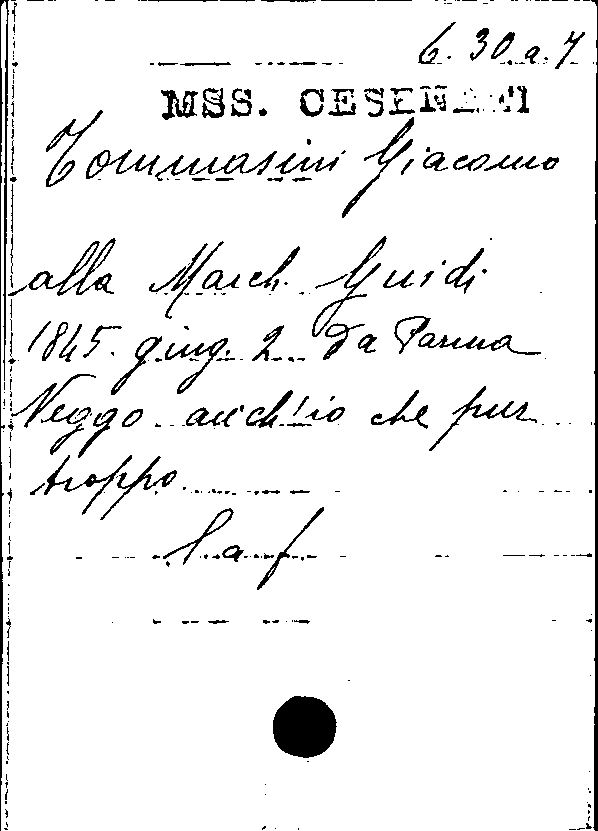 6. 30. a. 7
MSS. CESENATI
Tommasini Giacomo
alla March. Guidi
1845. giug. 2. Da Parma
Veggo anch'io che pur
troppo
l. a. f.